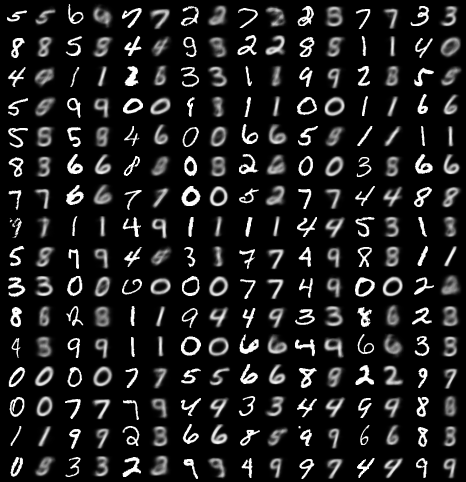 5 5 6 7 7 2 2 7 2 3 7 7 3 3
8 8 5 8 4 4 9 8 2 2 8 8 1 1 4 0
4 1 1 2 6 3 3 1 1 9 9 2 8 5 5
5 9 9 0 0 9 8 1 1 0 0 1 1 6 6
5 8 5 8 4 6 0 0 6 6 5 8 1 1 1 1
8 3 6 6 8 8 0 8 2 6 0 0 3 8 6 6
7 7 6 6 7 7 0 0 5 2 7 7 4 4 8 8
9 7 1 1 4 9 1 1 1 1 4 4 5 3 1 8
5 8 7 9 4 3 3 7 7 4 9 8 8 1 1
3 3 0 0 0 0 0 0 7 7 4 9 0 0 2
8 6 2 8 1 1 9 4 4 9 3 3 8 6 2 3
4 3 9 9 1 1 0 0 6 6 4 9 6 6 3 3
0 0 0 0 7 7 5 5 6 6 8 8 2 2 9 7
0 0 7 7 7 9 4 9 3 3 4 4 9 9 8 8
1 1 9 9 2 3 6 6 8 5 9 9 6 6 8 3
0 8 3 3 2 3 9 9 4 9 9 7 4 4 9 9